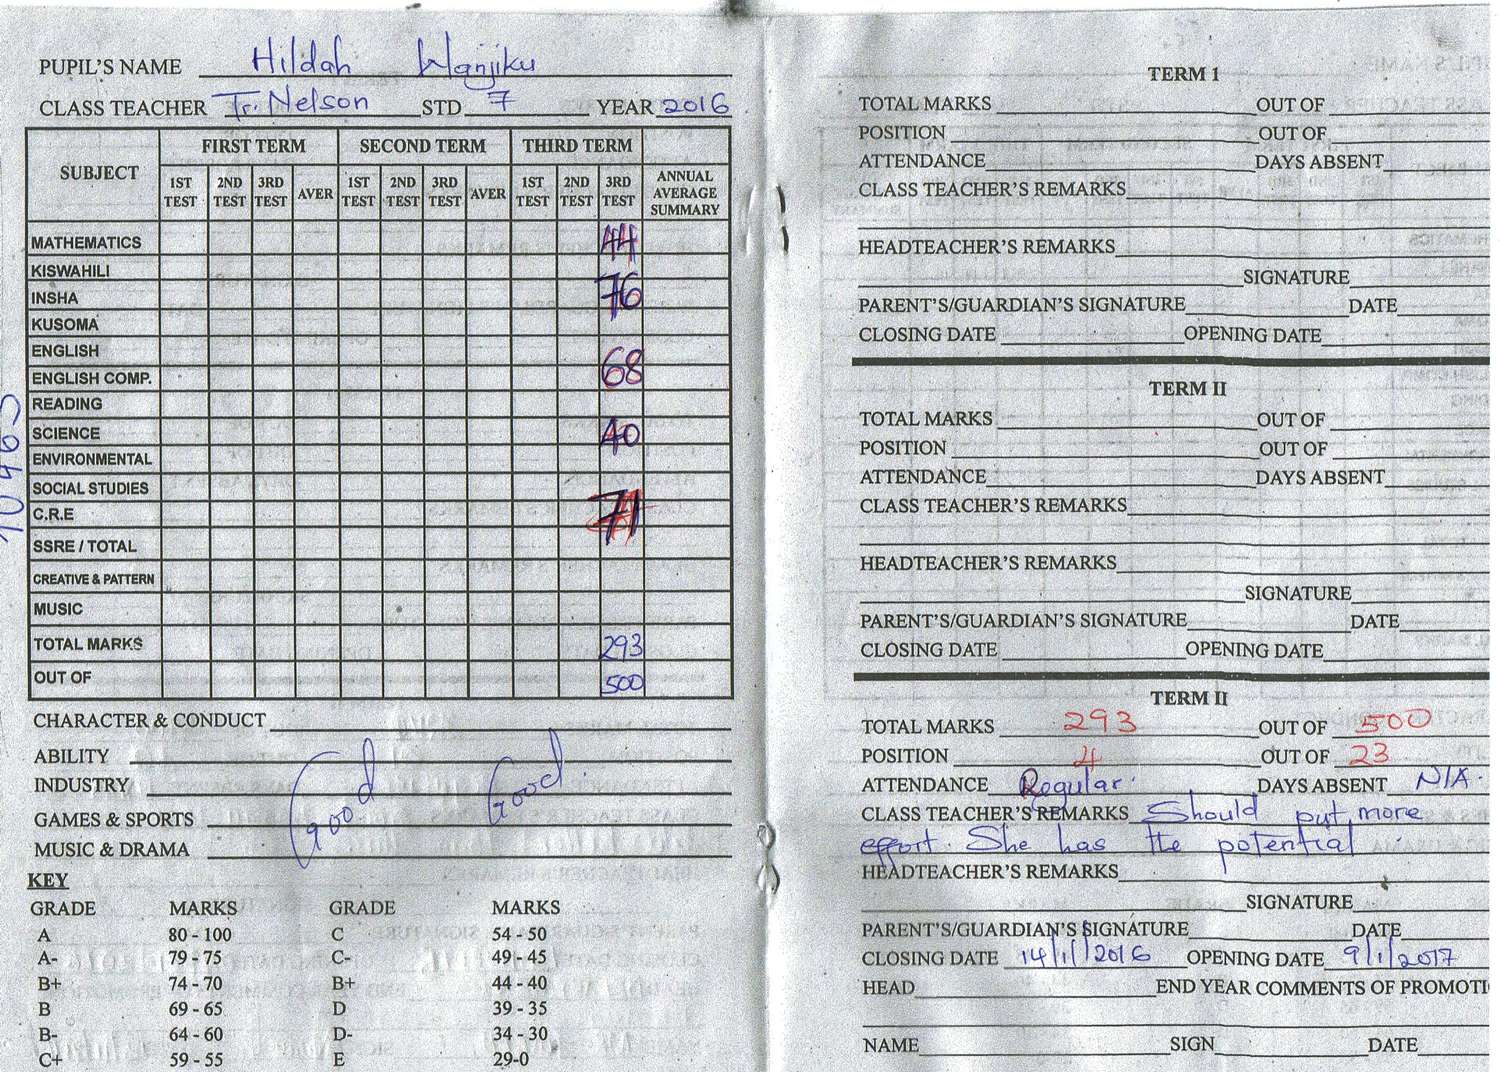 PUPIL'S NAME Hildah Wanjiku
CLASS TEACHER Tr. Nelson STD 7 YEAR 2016
SUBJECT FIRST TERM SECOND TERM THIRD TERM ANNUAL AVERAGE SUMMARY
1ST TEST 2ND TEST 3RD TEST AVER 1ST TEST 2ND TEST 3RD TEST AVER 1ST TEST 2ND TEST 3RD TEST
MATHEMATICS 44
KISWAHILI
INSHA 76
KUSOMA
ENGLISH
ENGLISH COMP. 68
READING
SCIENCE 40
ENVIRONMENTAL
SOCIAL STUDIES
C.R.E 71
SSRE / TOTAL
CREATIVE & PATTERN
MUSIC
TOTAL MARKS 293
OUT OF 500
CHARACTER & CONDUCT
ABILITY
INDUSTRY Good Good.
GAMES & SPORTS
MUSIC & DRAMA
KEY
GRADE MARKS GRADE MARKS
A 80 - 100 C 54 - 50
A- 79 - 75 C- 49 - 45
B+ 74 - 70 B+ 44 - 40
B 69 - 65 D 39 - 35
B- 64 - 60 D- 34 - 30
C+ 59 - 55 E 29-0
TERM 1
TOTAL MARKS OUT OF
POSITION OUT OF
ATTENDANCE DAYS ABSENT
CLASS TEACHER'S REMARKS
HEADTEACHER'S REMARKS
SIGNATURE
PARENT'S/GUARDIAN'S SIGNATURE DATE
CLOSING DATE OPENING DATE
TERM II
TOTAL MARKS OUT OF
POSITION OUT OF
ATTENDANCE DAYS ABSENT
CLASS TEACHER'S REMARKS
HEADTEACHER'S REMARKS
SIGNATURE
PARENT'S/GUARDIAN'S SIGNATURE DATE
CLOSING DATE OPENING DATE
TERM II
TOTAL MARKS 293 OUT OF 500
POSITION 4 OUT OF 23
ATTENDANCE Regular. DAYS ABSENT N/A.
CLASS TEACHER'S REMARKS Should put more
effort. She has the potential
HEADTEACHER'S REMARKS
SIGNATURE
PARENT'S/GUARDIAN'S SIGNATURE DATE
CLOSING DATE 14/1/2016 OPENING DATE 9/1/2017
HEAD END YEAR COMMENTS OF PROMOTI
NAME SIGN DATE